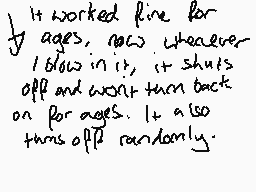 It worked fine for
ages, now whenever
I blow in it, it shuts
off and won't turn back
on for ages. It also
turns off randomly.